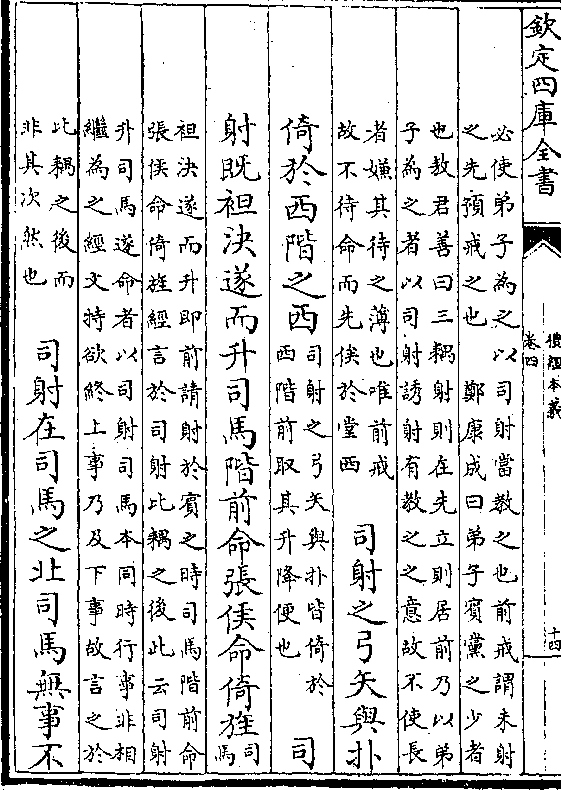 欽定四庫全書
禮經本義
卷四
十四
必使弟子為之以司射當教之也前戒謂未射
之先預戒之也　鄭康成曰弟子賓黨之少者
也敖君善曰三耦射則在先立則居前乃以弟
子為之者以司射誘射有教之之意故不使長
者嫌其待之薄也唯前戒
故不待命而先俟於堂西
司射之弓矢與扑
倚於西階之西
司射之弓矢與扑皆倚於
西階前取其升降便也
司
射既袒決遂而升司馬階前命張侯命倚旌
司
馬
袒決遂而升即前請射於賓之時司馬階前命
張侯命倚旌經言於司射比耦之後此云司射
升司馬遂命者以司射司馬本同時行事非相
繼為之經文特欲終上事乃及下事故言之於
比耦之後而
非其次然也
司射在司馬之北司馬無事不